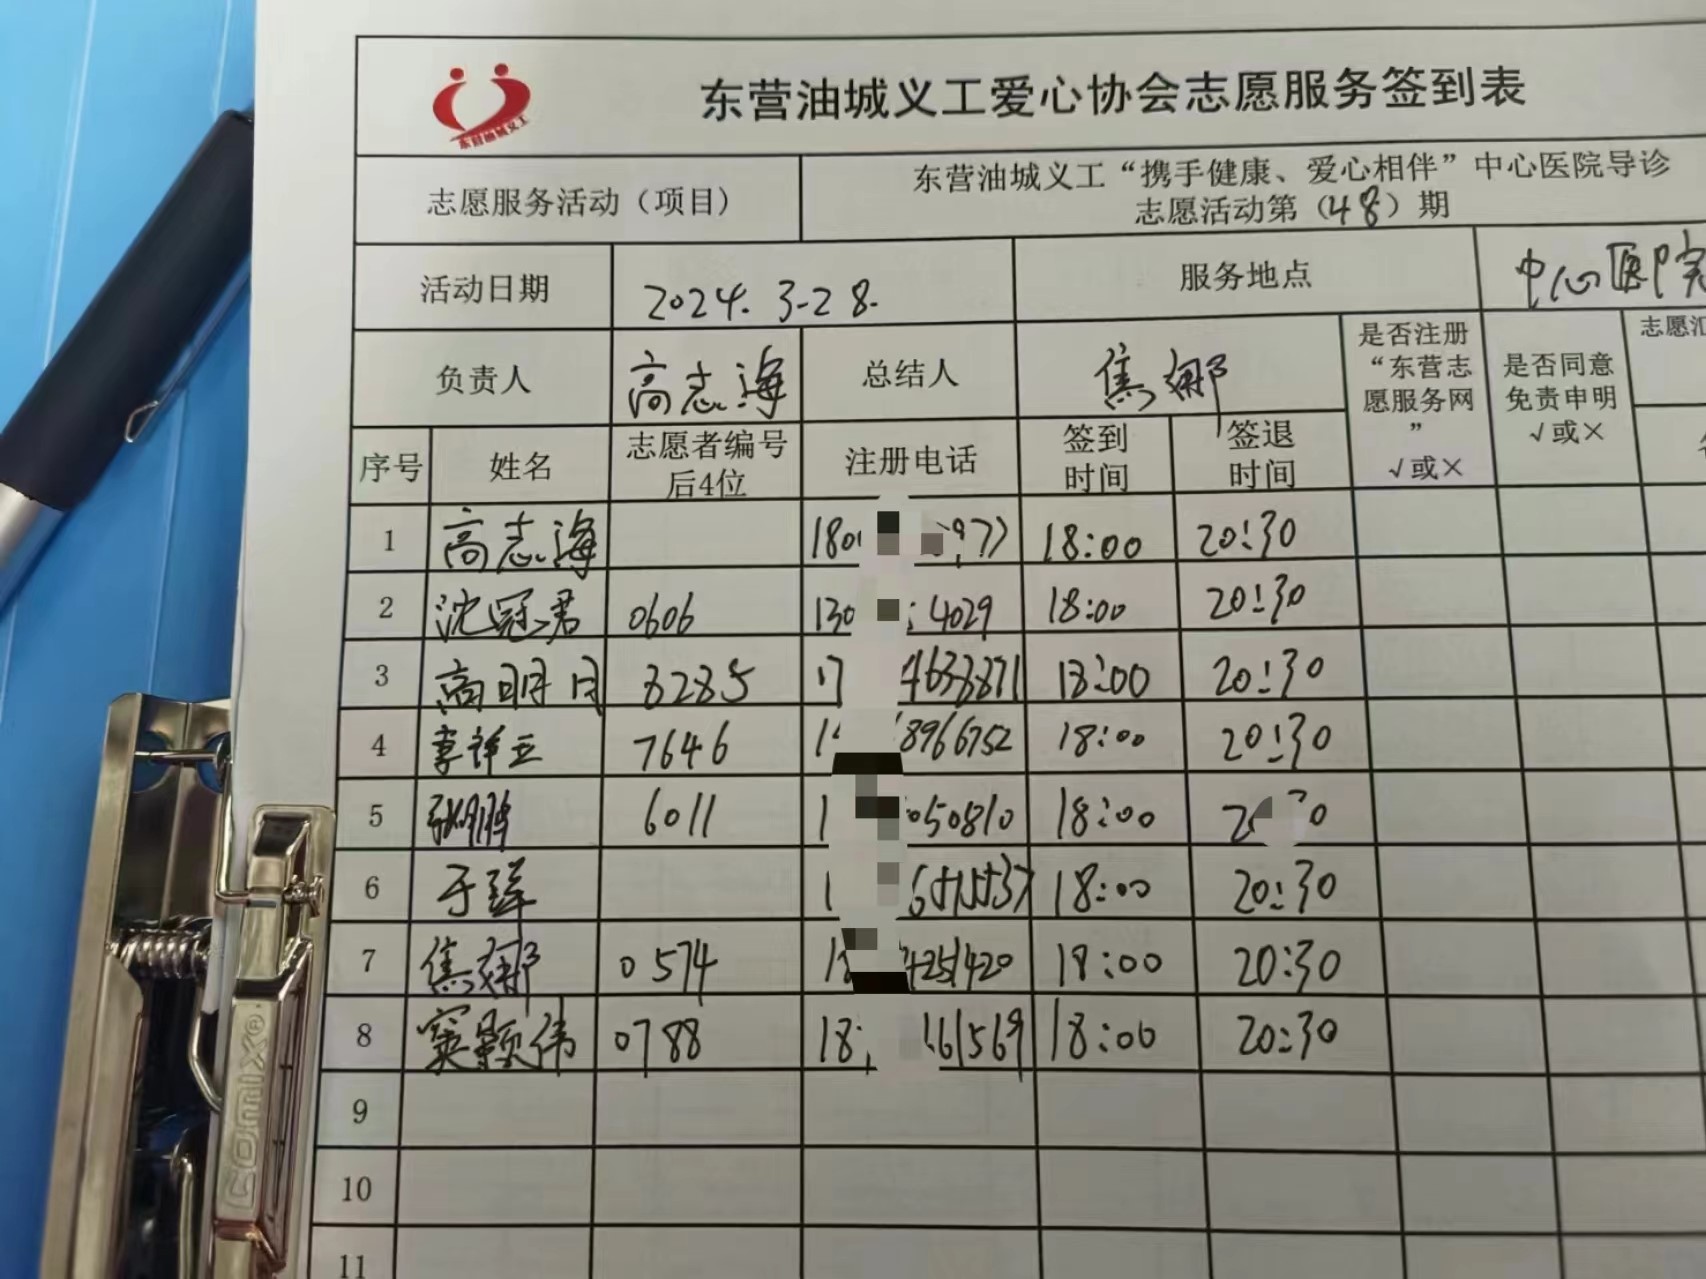 东营油城义工
东营油城义工爱心协会志愿服务签到表
志愿服务活动（项目）
东营油城义工“携手健康、爱心相伴”中心医院导诊
志愿活动第（48）期
活动日期 2024.3-28. 服务地点 中心医院
负责人 高志海 总结人 焦娜
是否注册
“东营志
愿服务网
”
√或×
是否同意
免责申明
√或×
志愿汇
序号 姓名
志愿者编号
后4位
注册电话
签到
时间
签退
时间
1 高志海 180 977 18:00 20:30
2 沈冠君 0606 130 4029 18:00 20:30
3 高明月 8285 17 4638871 18:00 20:30
4 李祥云 7646 1 8966752 18:00 20:30
5 张鹏 6011 1 050810 18:00 2 30
6 于 1 18:00 20:30
7 焦娜 0574 18 4251420 18:00 20:30
8 窦颖伟 0788 18 161569 18:00 20:30
9
10
11
comix®